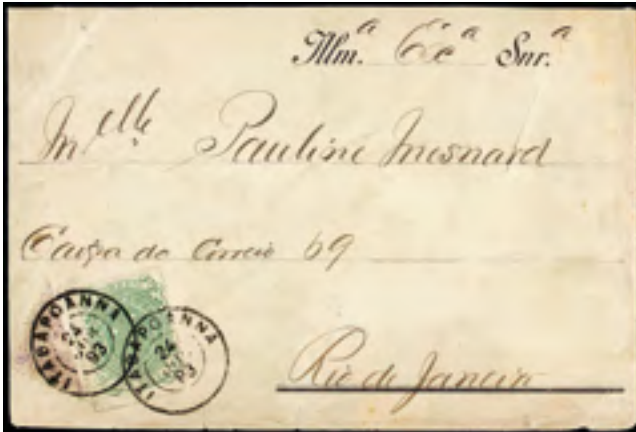 Illm.ª Exª Snr.ª
Melle Pauline Mesnard
Caixa do Correio 69
Rio de Janeiro
ITABAPOANNA
24
93
ITABAPOANNA
24
93